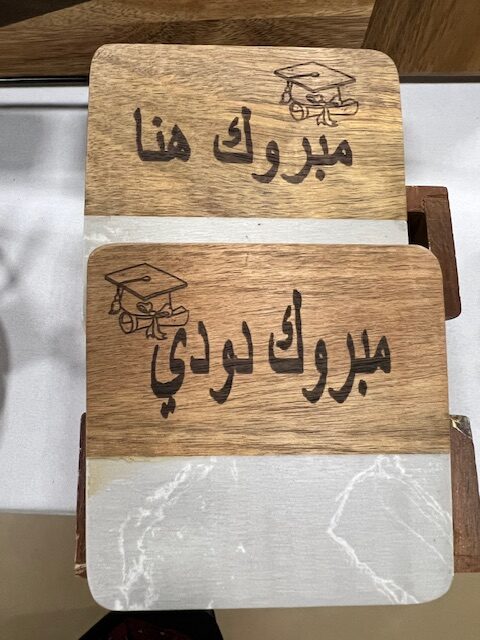 مبروك هنا
مبروك لودي